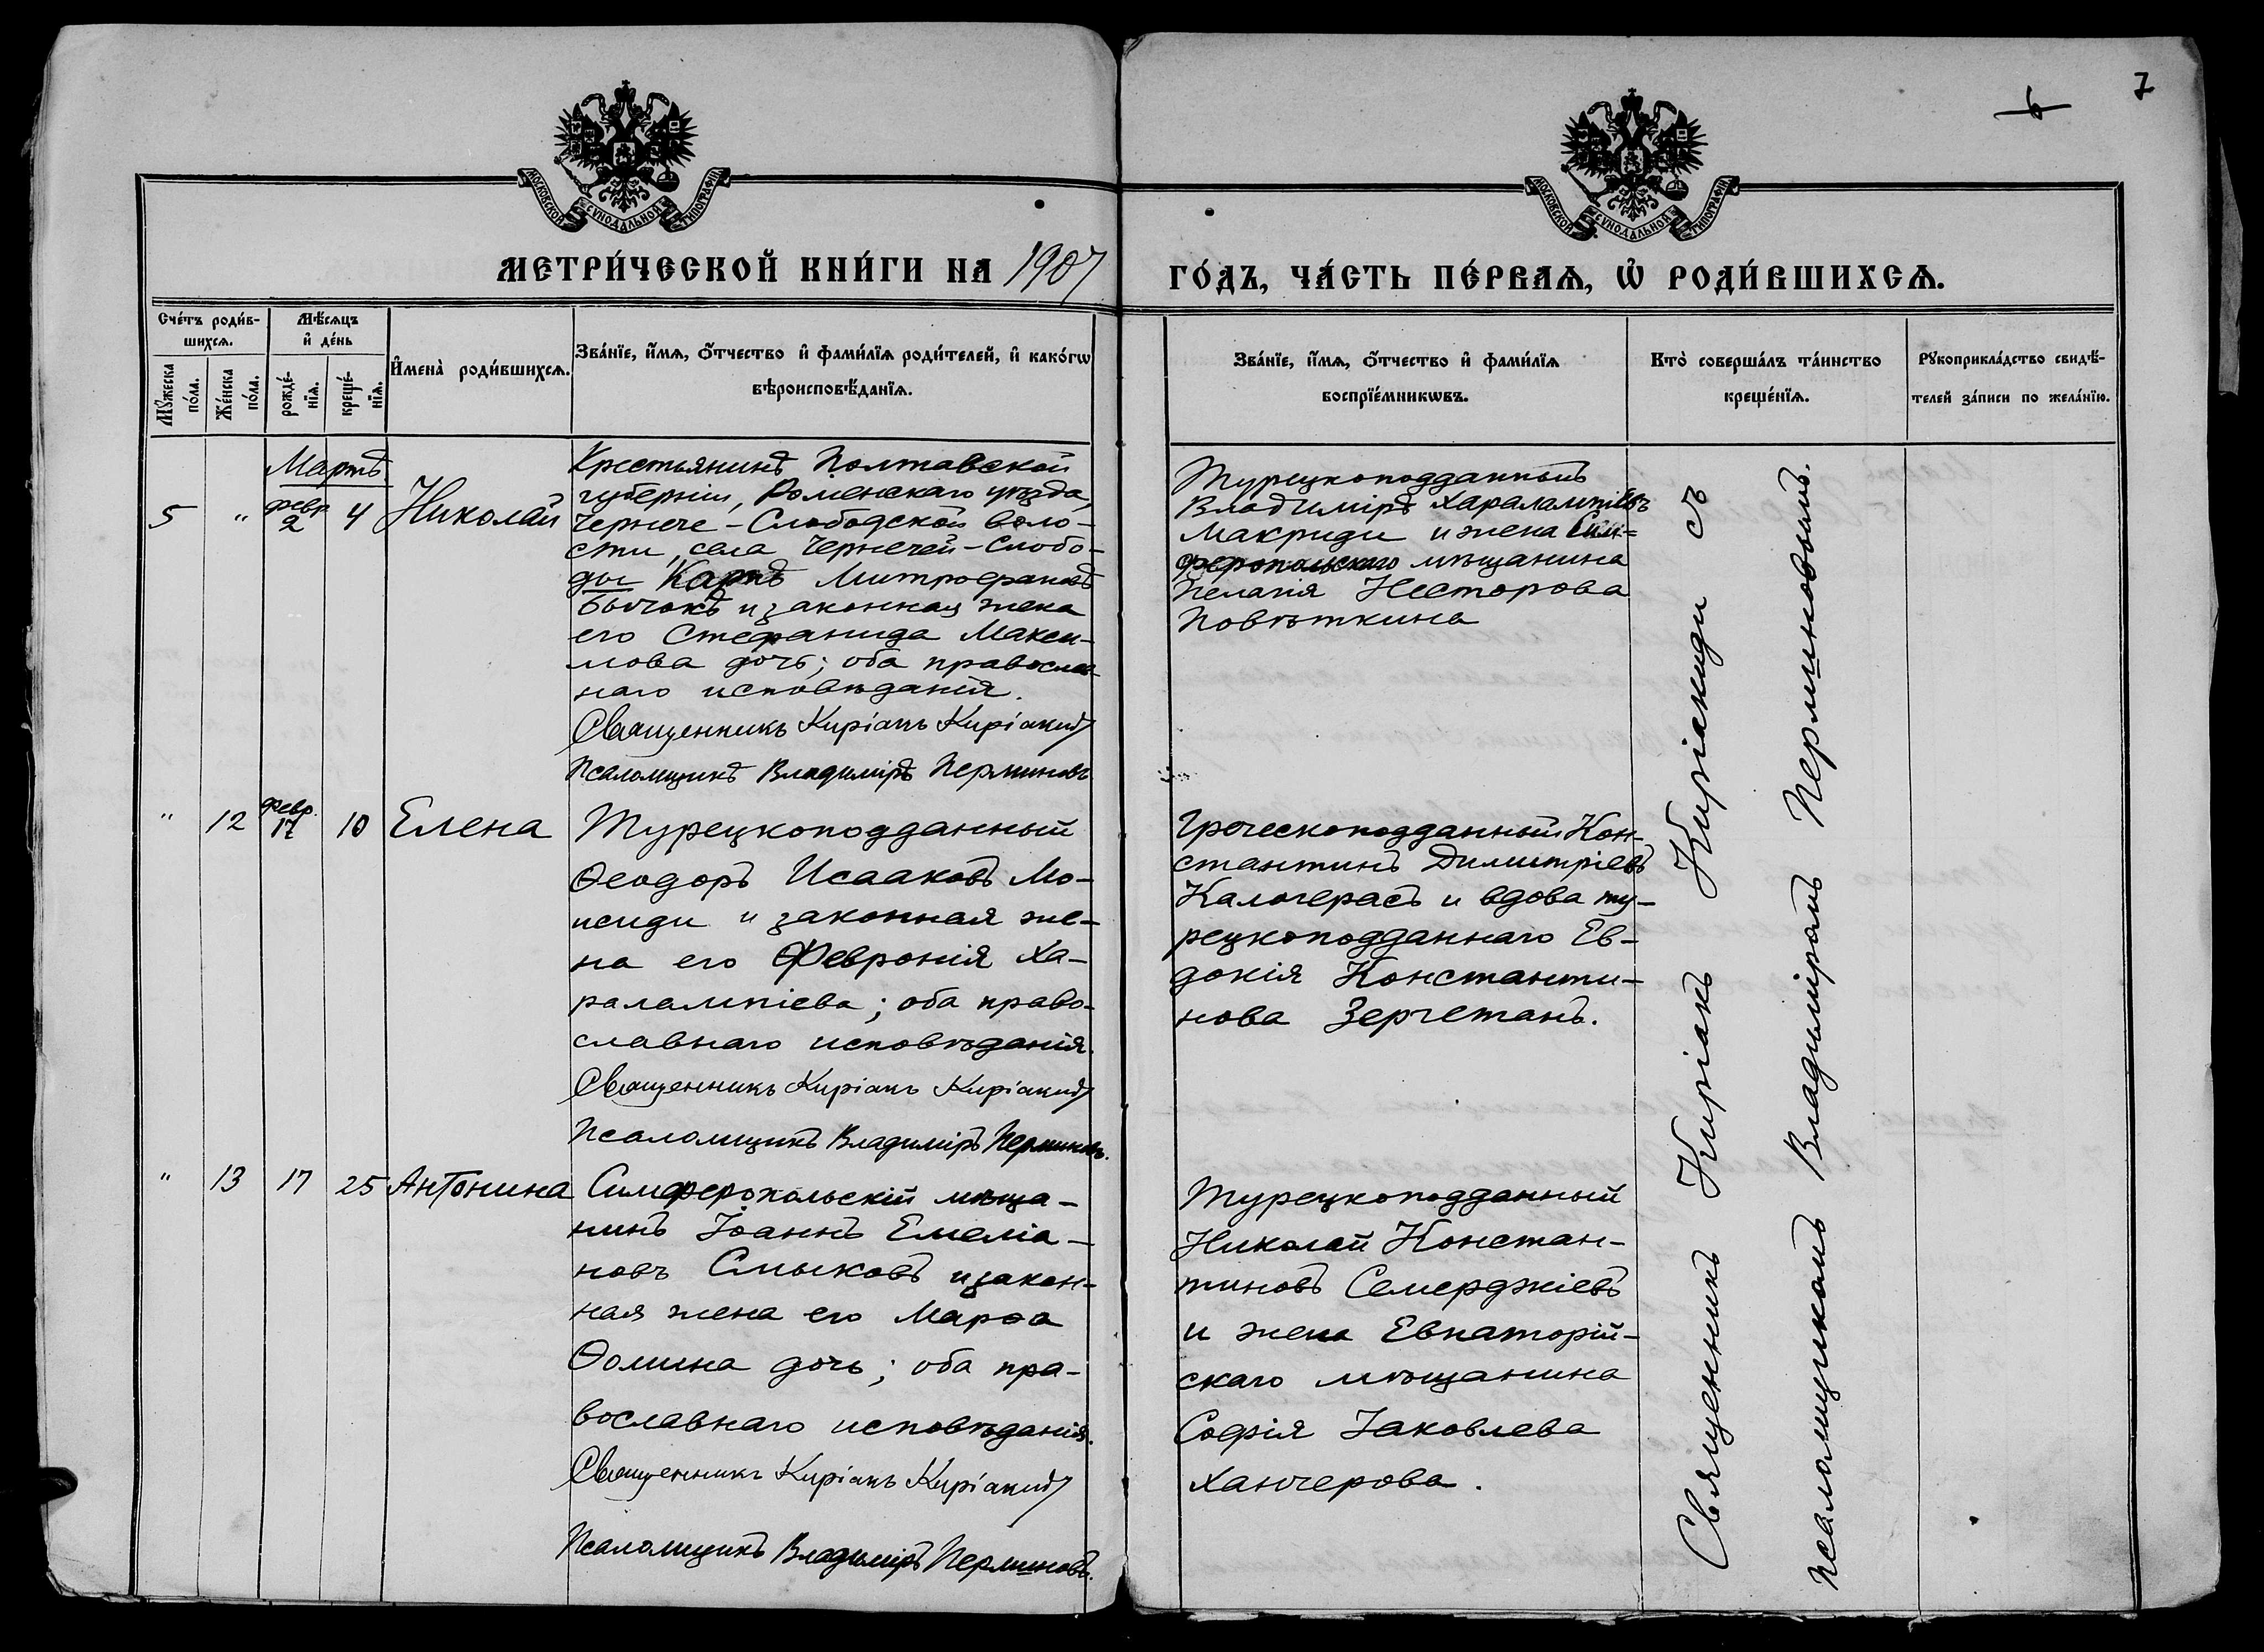 6
7
МОСКОВСКОЙ СѴНОДАЛЬНОЙ ТИПОГРАФІИ
МОСКОВСКОЙ СѴНОДАЛЬНОЙ ТИПОГРАФІИ
МЕТРИ́ЧЕСКОЙ КНИ́ГИ НА 1907
ГО́ДЪ, ЧА́СТЬ ПЕ́РВАѦ, Ѡ҆ РОДИ́ВШИХСѦ.
Сче́тъ роди́в-
шихсѧ.
Мꙋ́жеска
по́ла.
Же́нска
по́ла.
Мѣ́сѧцъ
и҆ де́нь
рожде́-
нїѧ.
креще́-
нїѧ.
И҆мена̀ роди́вшихсѧ.
Зва́нїе, и҆́мѧ, ѻ҆́тчество и҆ фами́лїѧ роди́телей, и҆ како́гѡ
вѣроисповѣ́данїѧ.
Зва́нїе, и҆́мѧ, ѻ҆́тчество и҆ фами́лїѧ
воспрїе́мникѡвъ.
Кто̀ соверша́лъ та́инство
креще́нїѧ.
Рꙋкоприкла́дство свидѣ́-
телей за́писи по жела́нїю.
Мартъ
5 " февр. 2 4 Николай
Крестьянинъ Полтавской
губерніи, Роменскаго уѣзда,
Чернече-Слободской воло-
сти, села Чернечей-Слобо-
ды Карпъ Митрофановъ
Бычокъ и законная жена
его Стефанида Макси-
мова дочь; оба православ-
наго исповѣданія.
Священникъ Киріакъ Киріакиди
Псаломщикъ Владиміръ Перминовъ
Турецкоподданный
Владиміръ Харалампіевъ
Макриди и жена Сим-
феропольскаго мѣщанина
Пелагія Несторова
Повѣткина
" 12 февр. 17 10 Елена
Турецкоподданный
Ѳеодоръ Исааковъ Мо-
исиди и законная же-
на его Февронія Ха-
ралампіева; оба право-
славнаго исповѣданія.
Священникъ Киріакъ Киріакиди
Псаломщикъ Владиміръ Перминовъ.
Греческоподданный Кон-
стантинъ Димитріевъ
Калогерасъ и вдова ту-
рецкоподданнаго Ев-
докія Константи-
нова Зергетанъ.
" 13 17 25 Антонина
Симферопольскій мѣща-
нинъ Іоаннъ Емеліа-
новъ Смыковъ и закон-
ная жена его Марѳа
Ѳомина дочь; оба пра-
вославнаго исповѣданія.
Священникъ Киріакъ Киріакиди
Псаломщикъ Владиміръ Перминовъ.
Турецкоподданный
Николай Констан-
тиновъ Семерджіевъ
и жена Евпаторій-
скаго мѣщанина
Софія Іаковлева
Ханчерова.
Священникъ Киріакъ Киріакиди съ
псаломщикомъ Владиміромъ Перминовымъ.